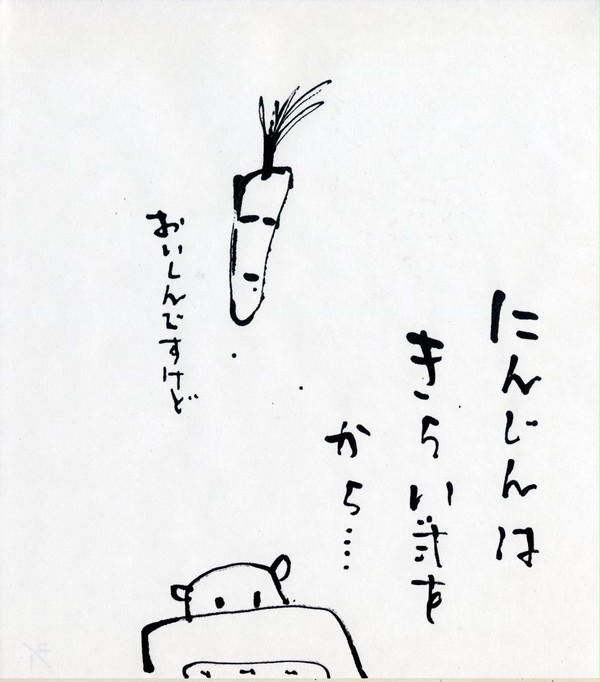 にんじんは
きらい
から……
おいしんですけど